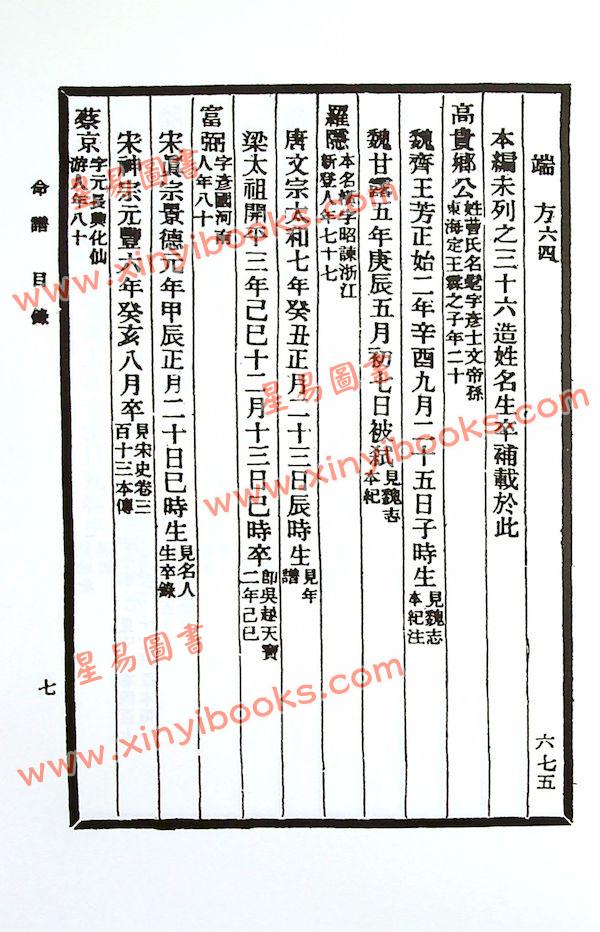 端方六四 六七五
本編未列之三十六造姓名生卒補載於此
高貴鄉公姓曹氏名髦字彥士文帝孫
東海定王霖之子年二十
魏齊王芳正始二年辛酉九月二十五日子時生見魏志
本紀注
魏甘露五年庚辰五月初七日被弒見魏志
本紀
羅隱本名橫字昭諫浙江
新登人年七十七
唐文宗太和七年癸丑正月二十三日辰時生見年
譜
梁太祖開平三年己巳十二月十三日巳時卒卽吳越天寶
二年己巳
富弼字彥國河南
人年八十
宋眞宗景德元年甲辰正月二十日巳時生見名人
生卒錄
宋神宗元豐六年癸亥八月卒見宋史卷三
百十三本傳
蔡京字元長興化仙
游人年八十
命譜 目錄 七
星易圖書
www.xinyibooks.com
星易圖書
www.xinyibooks.com
星易圖書
www.xinyibooks.com